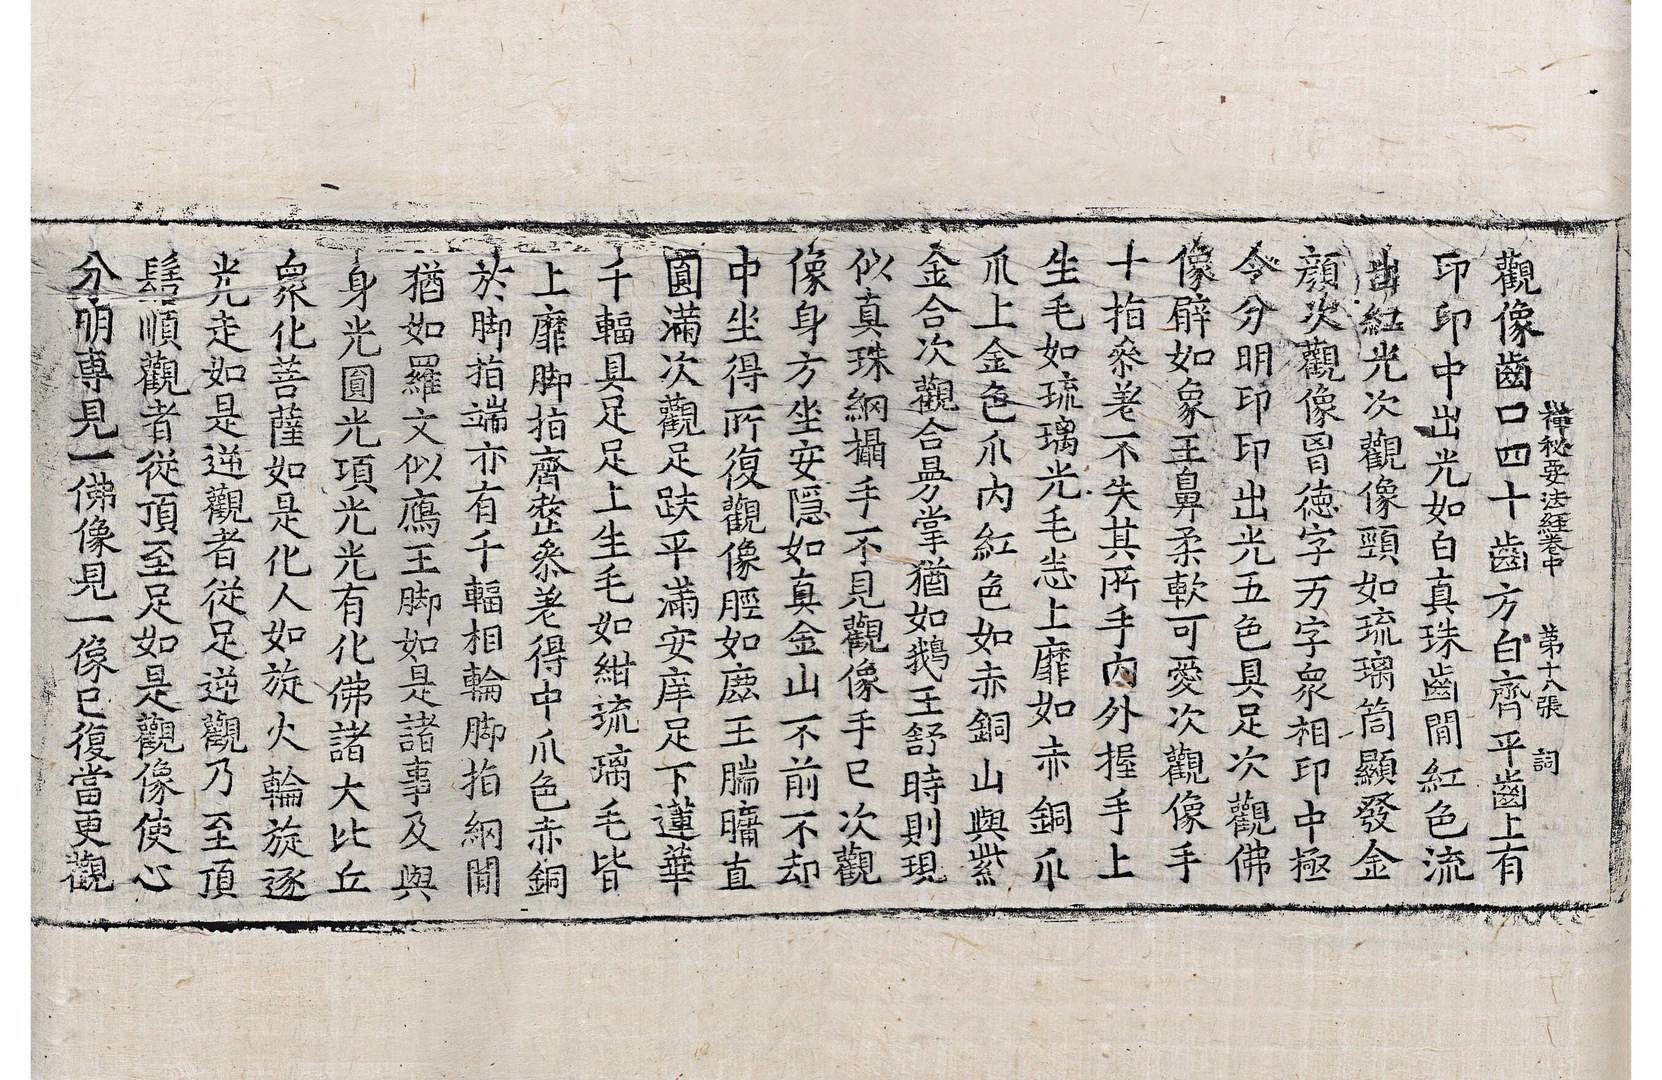 禪秘要法經卷中 第十八張 詞
觀像齒口四十齒方白齊平齒上有
印印中出光如白真珠齒間紅色流
出紅光次觀像頸如琉璃筒顯發金
顔次觀像胷德字万字衆相印中極
令分明印印出光五色具足次觀佛
像臂如象王鼻柔軟可愛次觀像手
十指叅差不失其所手内外握手上
生毛如琉璃光毛悉上靡如赤銅爪
爪上金色爪内紅色如赤銅山與紫
金合次觀合曼掌猶如鵝王舒時則現
似真珠網攝手不見觀像手已次觀
像身方坐安隱如真金山不前不却
中坐得所復觀像脛如鹿王腨𦟛直
圓滿次觀足趺平滿安庠足下蓮華
千輻具足足上生毛如紺琉璃毛皆
上靡脚指齊整叅差得中爪色赤銅
於脚指端亦有千輻相輪脚指網間
猶如羅文似鴈王脚如是諸事及與
身光圓光項光光有化佛諸大比丘
衆化菩薩如是化人如旋火輪旋逐
光走如是逆觀者從足逆觀乃至頂
髻順觀者從頂至足如是觀像使心
分明專見一佛像見一像已復當更觀